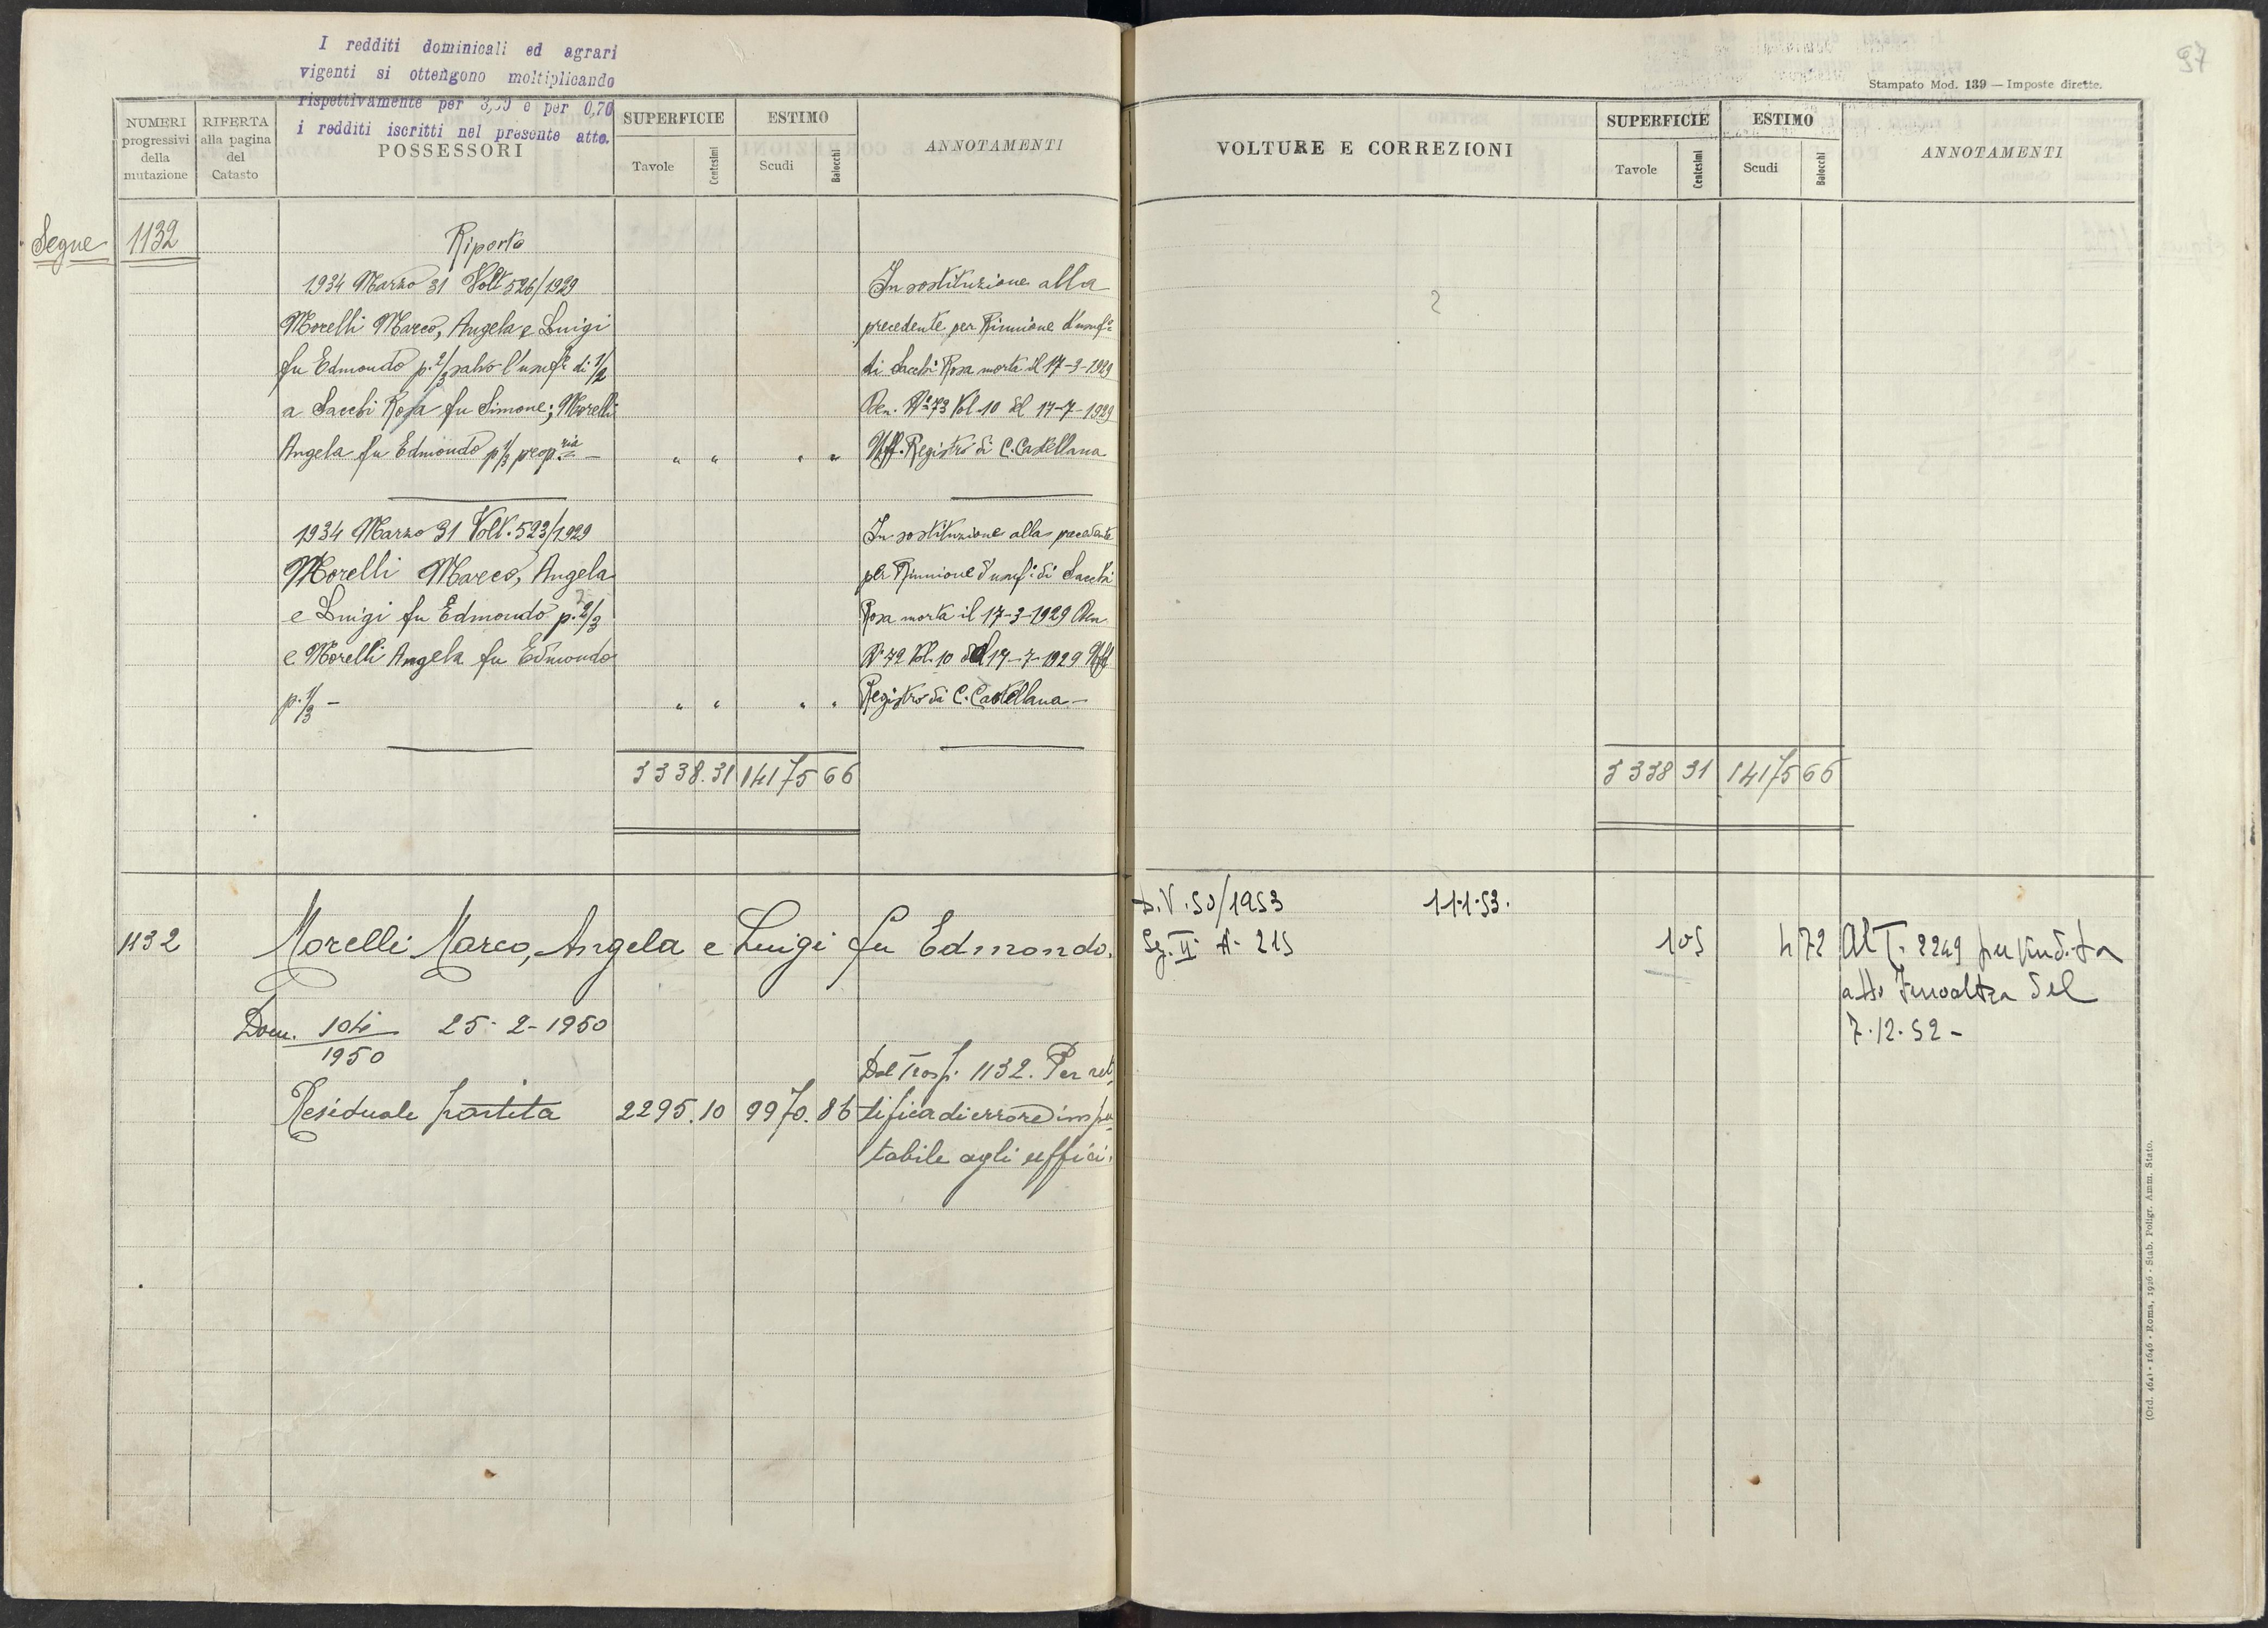 I redditi dominicali ed agrari
vigenti si ottengono moltiplicando
rispettivamente per e per 0,70
i redditi iscritti nel presente atto.
NUMERI progressivi della mutazione
RIFERTA alla pagina del Catasto
POSSESSORI
SUPERFICIE
Tavole Centesimi
ESTIMO
Scudi Baiocchi
ANNOTAMENTI
Segue 1132
Riporto
1934 Marzo 31 Volt 526/1929
Morelli Marco, Angela e Luigi
fu Edmondo p. 2/3 salvo l'usuf. di 1/2
a Sacchi Rosa fu Simone; Morelli
Angela fu Edmondo p 1/3 propria —
" " " "
In sostituzione alla
precedente per Riunione d'usuf.
di Sacchi Rosa morta il 17-3-1929
Den. N° 73 Vol 10 del 17-7-1929
Uff. Registro di C. Castellana
1934 Marzo 31 Volt. 523/1929
Morelli Marco, Angela
e Luigi fu Edmondo p. 2/3
e Morelli Angela fu Edmondo
p. 1/3 —
" " " "
In sostituzione alla precedente
per Riunione d'usuf. di Sacchi
Rosa morta il 17-3-1929 Den
N° 72 Vol. 10 del 17-7-1929 Uff
Registro di C. Castellana —
3338.31 14175 66
1132 Morelli Marco, Angela e Luigi fu Edmondo.
Dom. 104/1950 25-2-1950
Residuale partita 2295.10 9970.86
Dal Trasp. 1132. Per ret-
tifica di errore impu-
tabile agli uffici.
97
Stampato Mod. 139 — Imposte dirette.
VOLTURE E CORREZIONI
SUPERFICIE
Tavole Centesimi
ESTIMO
Scudi Baiocchi
ANNOTAMENTI
2
3338 31 14175 66
D.V. 50/1953 11.1.53.
Sz. II N. 215
105 4 72
Al T. 2249 per vendita
atto del
7.12.52 —
(Ord. 4641 - 1646 - Roma, 1926 - Stab. Poligr. Amm. Stato.